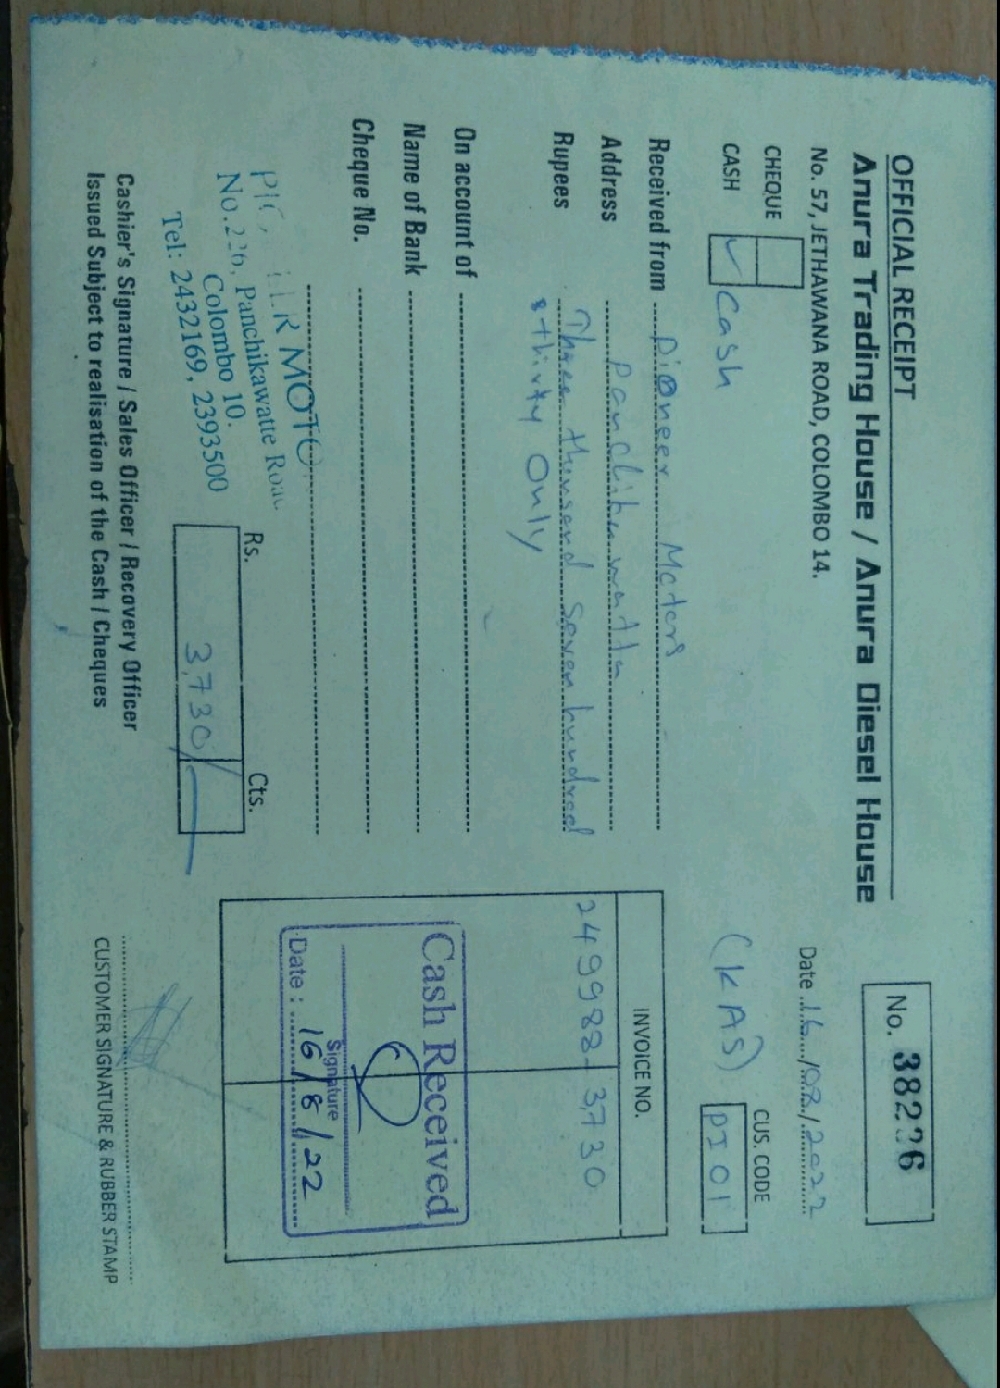 OFFICIAL RECEIPT
Anura Trading House / Anura Diesel House
No. 57, JETHAWANA ROAD, COLOMBO 14.
No. 38236
Date 16/08/2022
CHEQUE
CASH ✓ Cash
(KAS)
CUS. CODE
PI 01
Received from Pioneer Motors
Address Panchikawatta
Rupees Three thousand Seven hundred
& thirty Only
On account of
Name of Bank
Cheque No.
INVOICE NO.
249988 3730
Cash Received
Signature
Date : 16/8/22
MOTO
No.226, Panchikawatte Road
Colombo 10.
Tel: 2432169, 2393500
Rs. Cts.
3,730/
Cashier's Signature / Sales Officer / Recovery Officer
Issued Subject to realisation of the Cash / Cheques
CUSTOMER SIGNATURE & RUBBER STAMP